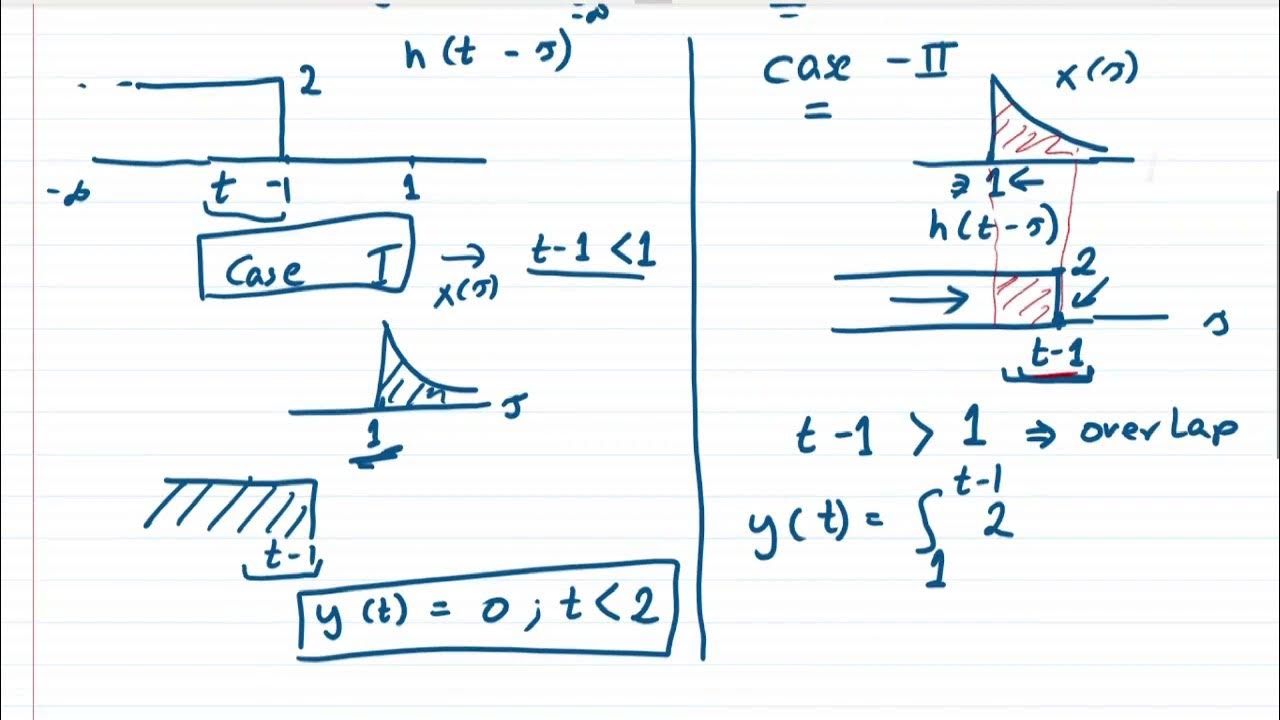 -∞
h(t - τ)
2
-∞ t -1 1
Case I → t-1 < 1
x(τ)
τ
1
t-1
y(t) = 0 ; t < 2
=
case - II
=
x(τ)
1
h(t - τ)
2
τ
t-1
t-1 > 1 ⇒ overlap
y(t) = ∫ 2
t-1
1